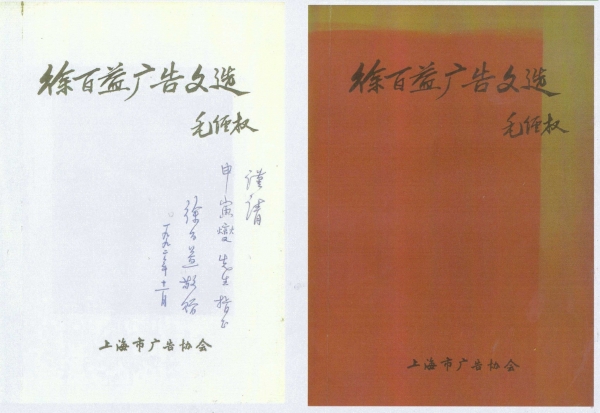 徐百益广告文选
毛经权
谨请
申寅燮先生指正
徐百益敬赠
一九九二年十一月
上海市广告协会
徐百益广告文选
毛经权
上海市广告协会